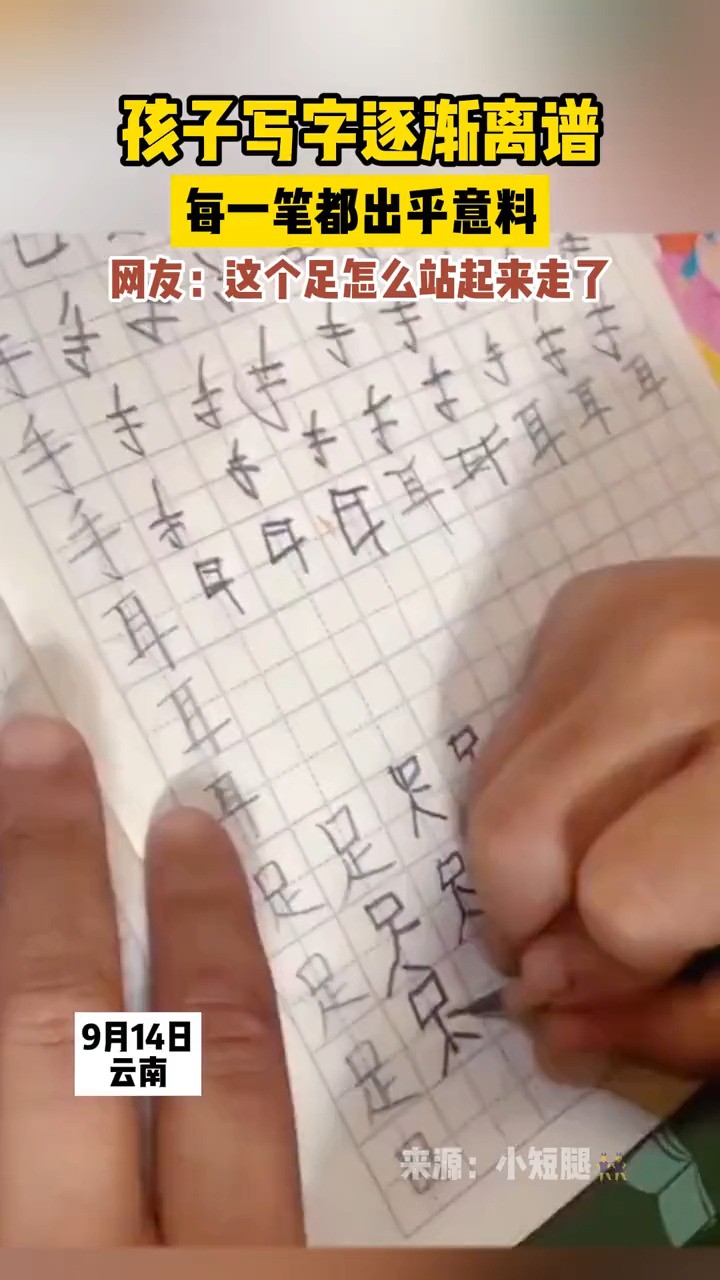 孩子写字逐渐离谱
每一笔都出乎意料
网友：这个足怎么站起来走了
手手手
手手手手手手
手手手手手手手手手
耳耳耳耳耳耳耳耳耳
耳
耳
足足足足
足足足
足足
9月14日
云南
来源：小短腿